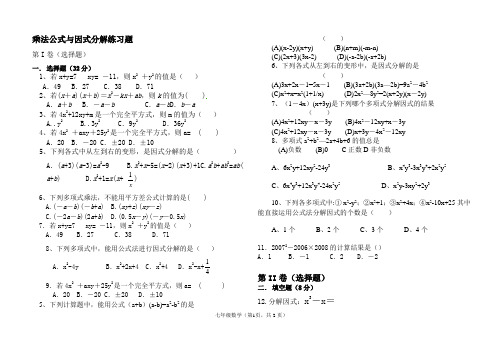 乘法公式与因式分解练习题
第 I 卷(选择题)
一. 选择题(32分)
1、若x+y=7 xy= -11,则x² +y²的值是( )
A. 49 B.27 C.38 D.71
2、若(x+a)(x+b)=x²-kx+ab,则k的值为( )
A.a+b B.-a-b C.a-b D.b-a
3、若4x²+12xy+m是一个完全平方式,则m的值为( )
A.y² B..3y² C.9y² D.36y²
4、若4x² +axy+25y²是一个完全平方式,则a= ( )
A.20 B.-20 C.±20 D.±10
5、下列各式中从左到右的变形,是因式分解的是( )
A.(a+3)(a-3)=a²-9 B.x²+x-5=(x-2)(x+3)+1 C.a²b+ab²=ab(
a+b) D.x²+1=x(x+1/x)
6、下列多项式乘法,不能用平方差公式计算的是( )
A.(-a-b)(-b+a) B.(xy+z)(xy-z)
C.(-2a-b)(2a+b) D.(0.5x-y)(-y-0.5x)
7.若x+y=7 xy= -11,则x² +y²的值是( )
A.49 B.27 C.38 D.71
8、下列多项式中,能用公式法进行因式分解的是( )
A.x²-4y B.x²+2x+4 C.x²+4 D.x²-x+1/4
9.若4x² +axy+25y²是一个完全平方式,则a= ( )
A.20 B.-20 C.±20 D.±10
5、下列计算题中,能用公式(a+b)(a-b)=a²-b²的是
( )
(A)(x-2y)(x+y) (B)(n+m)(-m-n)
(C)(2x+3)(3x-2) (D)(-a-2b)(-a+2b)
6、下列各式从左到右的变形中,是因式分解的是
( )
(A)3x+2x-1=5x-1 (B)(3a+2b)(3a-2b)=9a²-4b²
(C)x²+x=x²(1+1/x) (D)2x²-8y²=2(x+2y)(x-2y)
7、(1-4x)(x+3y)是下列哪个多项式分解因式的结果
( )
(A)4x²+12xy-x-3y (B)4x²-12xy+x-3y
(C)4x²+12xy-x-3y (D)x+3y-4x²-12xy
8、多项式a²+b²-2a+4b+6的值总是
(A)负数 (B)0 C正数 D非负数
A、6x³y+12xy²-24y³ B、x⁴y³-3x³y²+2x²y²
C、6x³y²+12x²y³-24x²y² D、x²y-3xy²+2y³
10、下列各多项式中:① x²-y²;②x²+1;③x²+4x;④x²-10x+25其中
能直接运用公式法分解因式的个数是( )
A、1个 B、2个 C、3个 D、4个
11.2007²-2006×2008的计算结果是()
A.1 B.-1 C.2 D.-2
第 II 卷(选择题)
二. 填空题(8分)
12.分解因式:x³-x=
七年级数学(第1页,共2页)